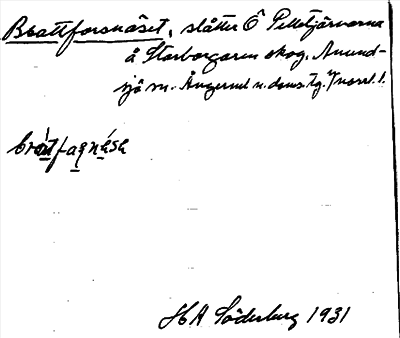 Brattforsnäset, slåtter Ö Pelletjärnarna
å Storborgaren skog. Anund-
sjö sn. Ångerml n. doms. tg. V/norrl. l.
brátfaṣnésa
H A Söderberg 1931